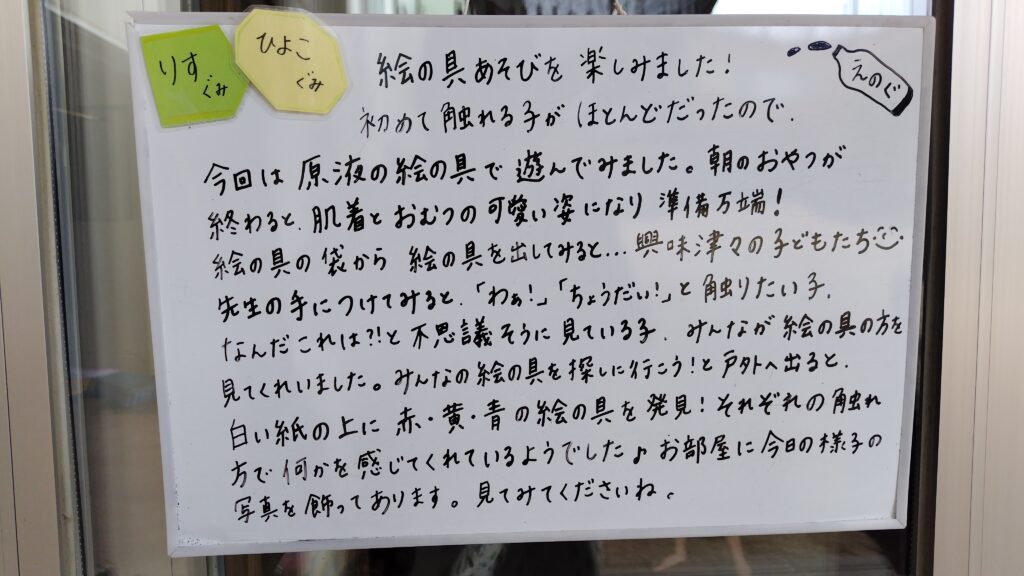 りす
ぐみ
ひよこ
ぐみ
えのぐ
絵の具あそびを楽しみました!
初めて触れる子がほとんどだったので、
今回は原液の絵の具で遊んでみました。朝のおやつが
終わると、肌着とおむつの可愛い姿になり準備万端!
絵の具の袋から絵の具を出してみると...興味津々の子どもたち
先生の手につけてみると、「わぁ!」「ちょうだい!」と触りたい子、
なんだこれは?!と不思議そうに見ている子、みんなが絵の具の方を
見てくれいました。みんなの絵の具を探しに行こう!と戸外へ出ると、
白い紙の上に赤・黄・青の絵の具を発見!それぞれの触れ
方で何かを感じてくれているようでした♪お部屋に今日の様子の
写真を飾ってあります。見てみてくださいね。